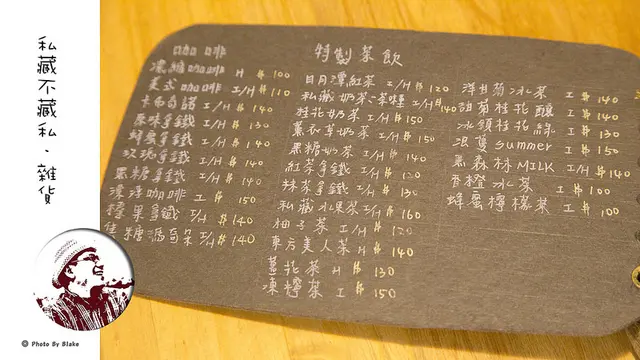 私藏不藏私、雜貨
咖啡
濃縮咖啡 H $100
美式咖啡 I/H $110
卡布奇諾 I/H $140
原味拿鐵 I/H $130
蜂蜜拿鐵 I/H $140
玫瑰拿鐵 I/H $140
黑糖拿鐵 I/H $140
漂浮咖啡 I $150
榛果拿鐵 I/H $140
焦糖瑪奇朵 I/H $140
特製茶飲
日月潭紅茶 I/H $120
私藏奶茶 I/H $140
桂花奶茶 I/H $150
薰衣草奶茶 I/H $150
黑糖奶茶 I/H $140
紅茶拿鐵 I/H $120
抹茶拿鐵 I/H $130
私藏水果茶 I/H $160
柚子茶 I/H $120
東方美人茶 H $140
薑花茶 H $130
凍檸茶 I $150
洋甘菊冰茶 I $140
甜菊桂花釀 I $140
冰頂桂花綠 I $130
浪漫summer I $150
黑森林MILK I/H $140
香橙冰茶 I $100
蜂蜜檸檬茶 I $100
© Photo By Blake